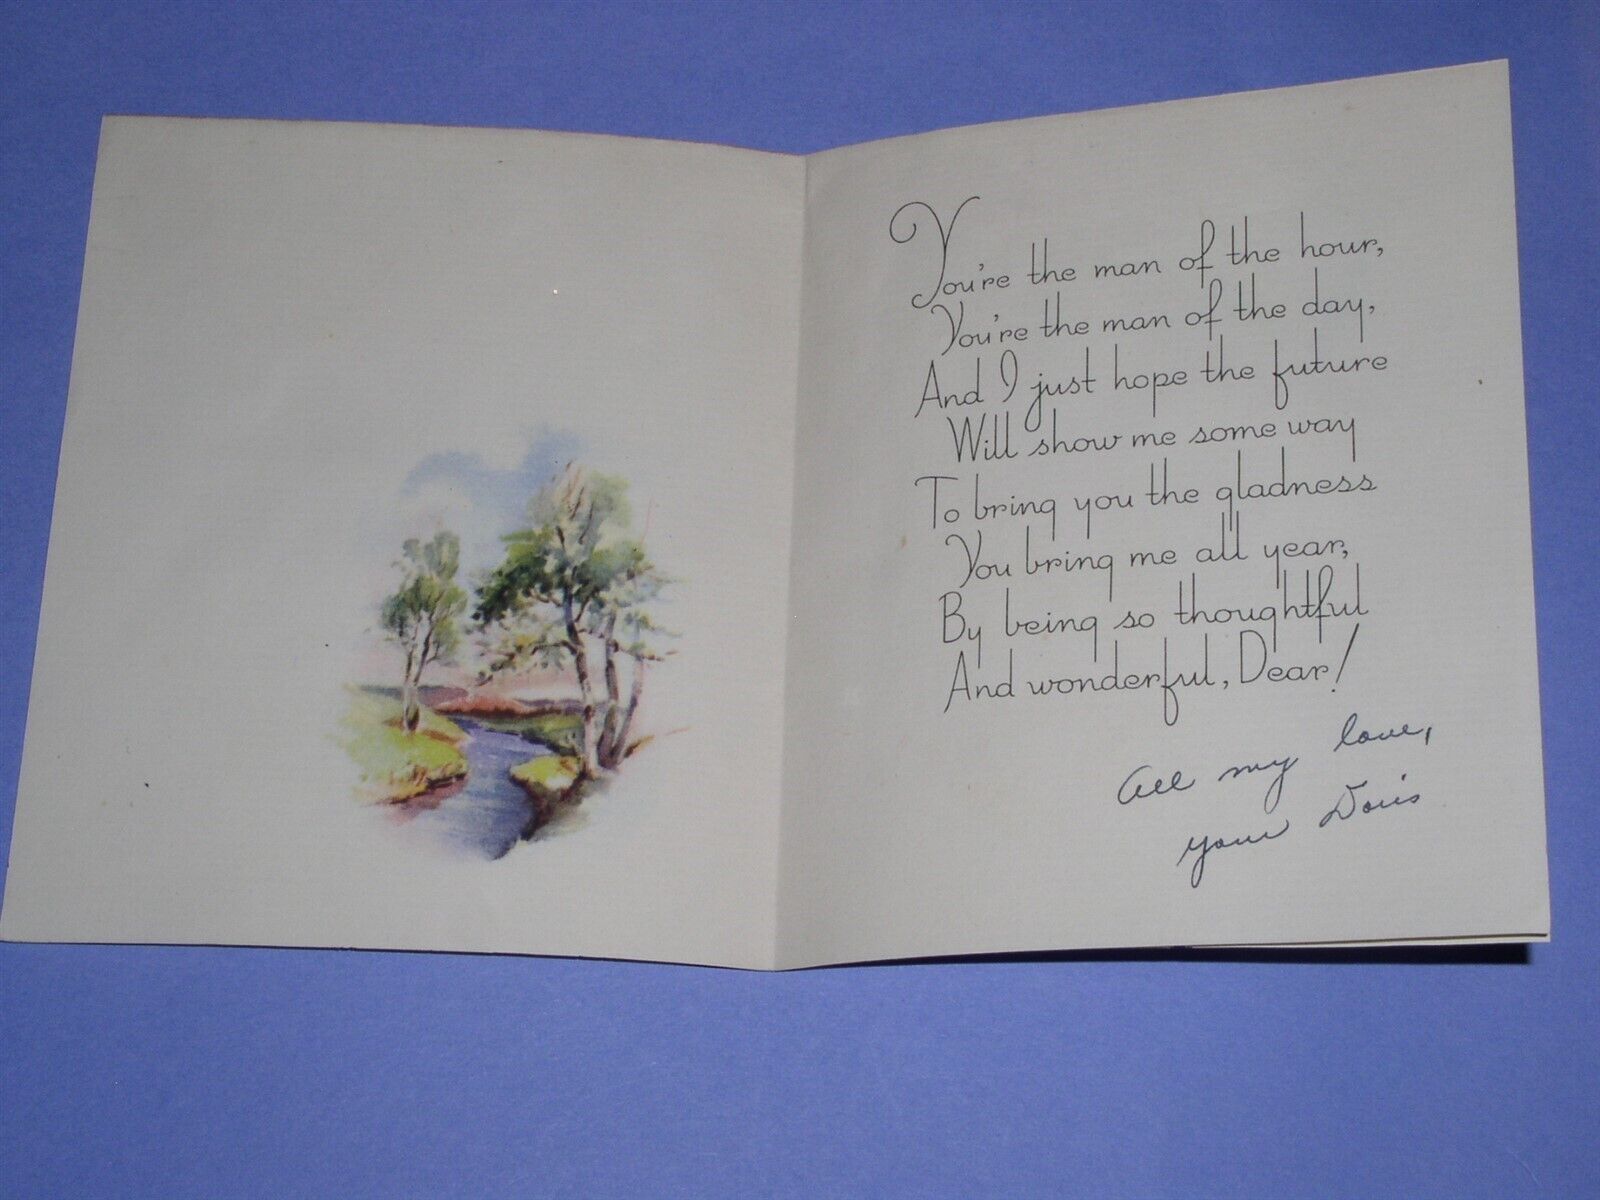 You're the man of the hour,
You're the man of the day,
And I just hope the future
Will show me some way
To bring you the gladness
You bring me all year,
By being so thoughtful
And wonderful, Dear!
All my love,
your Doris